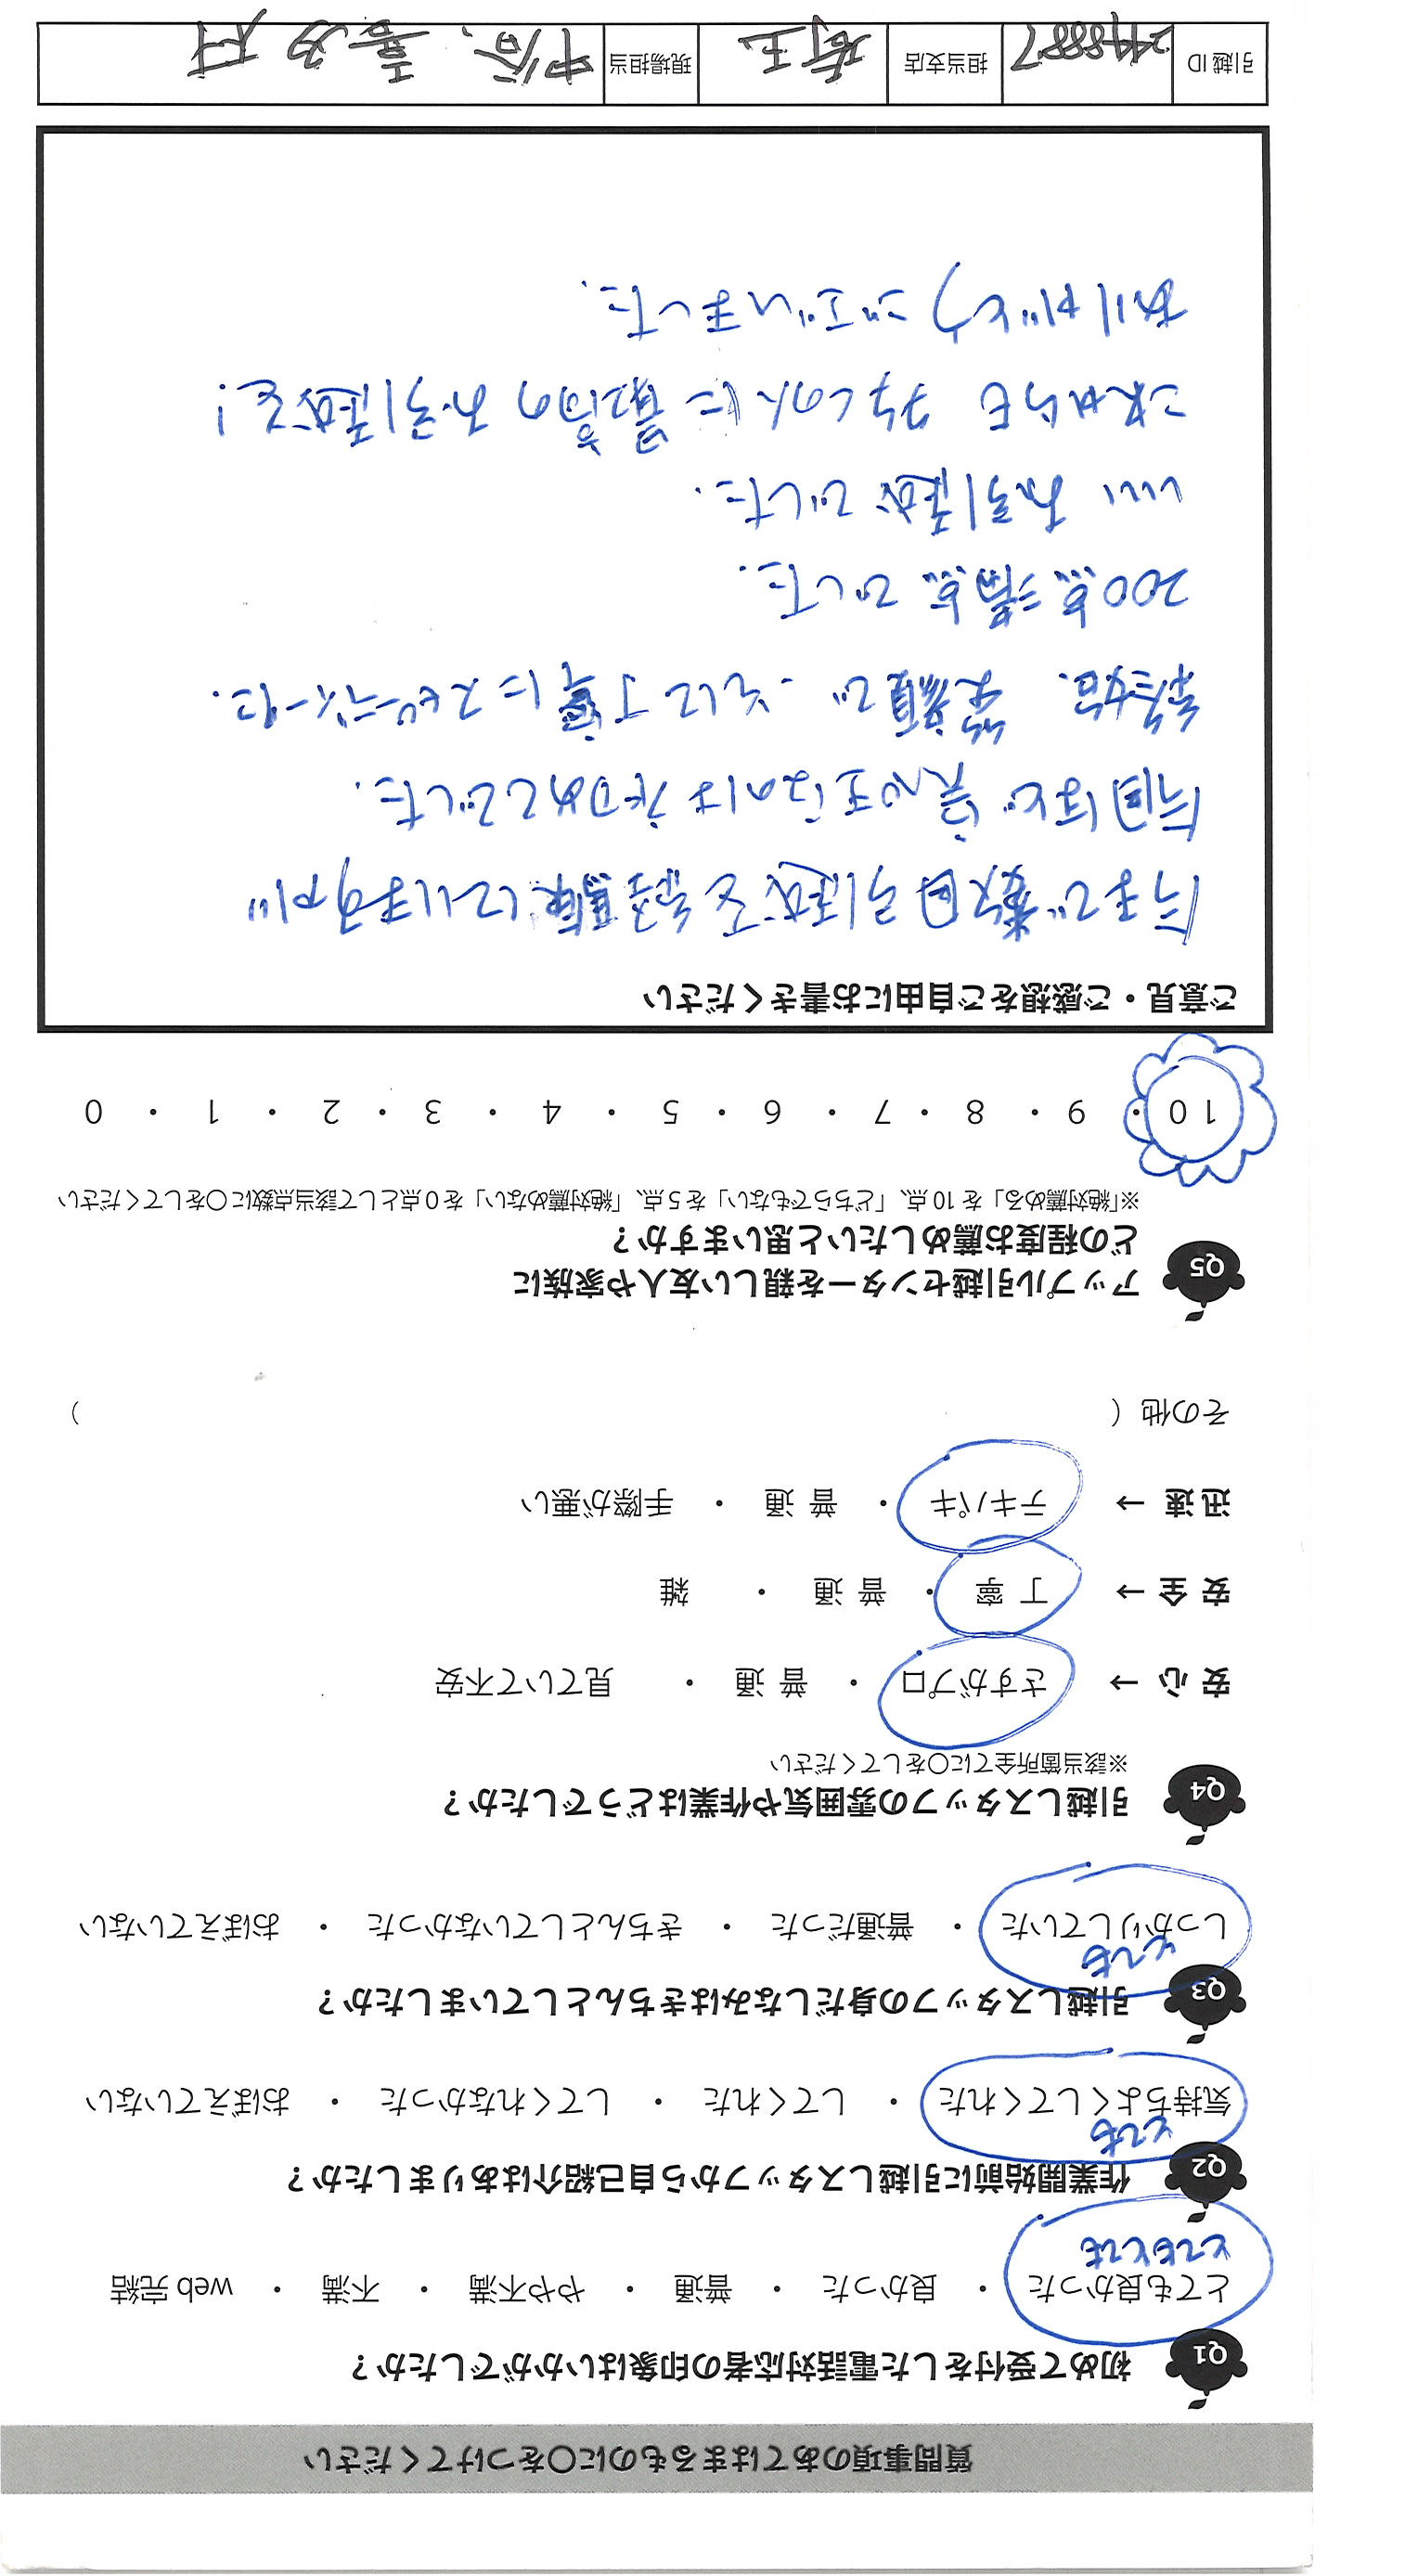 質問事項のあてはまるものに〇をつけてください
Q1 初めて受付をした電話対応者の印象はいかがでしたか？
とても良かった ・ 良かった ・ 普通 ・ やや不満 ・ 不満 ・ web 完結
とてもとても
Q2 作業開始前に引越しスタッフから自己紹介はありましたか？
とても
気持ちよくしてくれた ・ してくれた ・ してくれなかった ・ おぼえていない
Q3 引越しスタッフの身だしなみはきちんとしていましたか？
とても
しっかりしていた ・ 普通だった ・ きちんとしていなかった ・ おぼえていない
Q4 引越しスタッフの雰囲気や作業はどうでしたか？
※該当箇所全てに〇をしてください
安 心 → さすがプロ ・ 普 通 ・ 見ていて不安
安 全 → 丁 寧 ・ 普 通 ・ 雑
迅 速 → テキパキ ・ 普 通 ・ 手際が悪い
その他（ ）
Q5 アップル引越センターを親しい友人や家族に
どの程度お薦めしたいと思いますか？
※「絶対薦める」を 10 点、「どちらでもない」を 5 点、「絶対薦めない」を 0 点として該当点数に〇をしてください
10 ・ 9 ・ 8 ・ 7 ・ 6 ・ 5 ・ 4 ・ 3 ・ 2 ・ 1 ・ 0
ご意見・ご感想をご自由にお書きください
今まで数回引越を経験していますが
今回ほど安心なのははじめてでした.
終始、笑顔で、そして丁寧にスピーディーに.
200点満点でした.
いいお引越がでした.
これからも多くの人に最高のお引越を！
ありがとうございました.
引越 ID 2448887 担当支店 埼玉 現場担当 中谷、喜多村